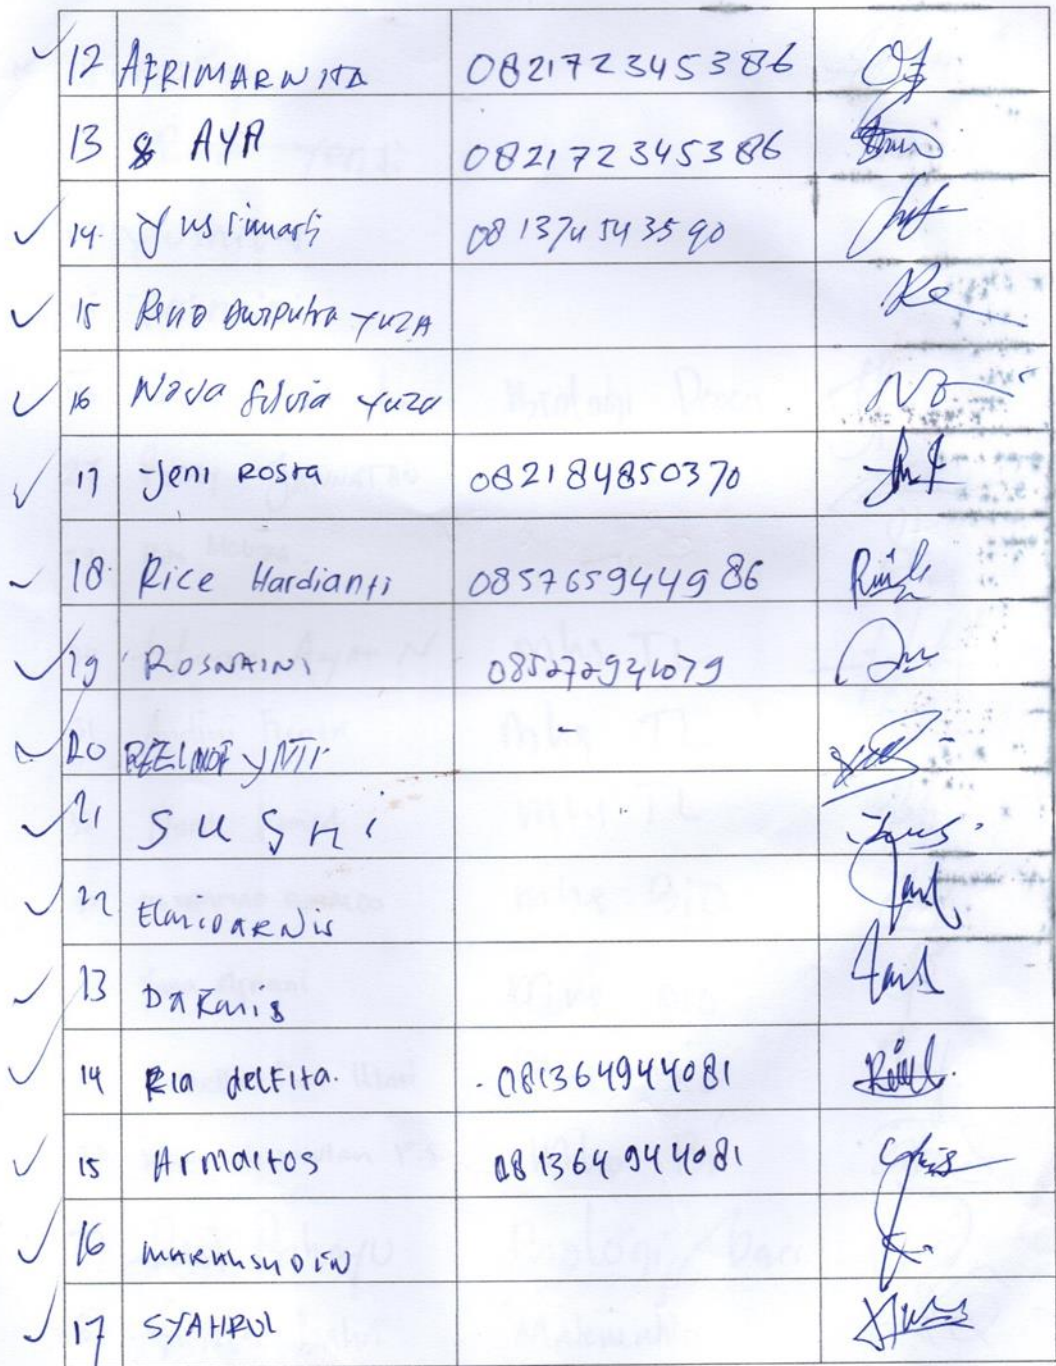 12 AFRIMARNITA 082172345386
13 AYA 082172345386
14. Yusimarti 081374543590
15 Reno Dwiputra YUZA
16 Nova Silvia Yuza
17 Jeni Rosta 082184850370
18. Rice Hardianti 085765944986
19 ROSNAINI
20 -
21 SUSRi
22
13 Daranis
14 Ria delfita. 081364944081
15 Armaitos 081364944081
16 MARAHSUDIN
17 SYAHRUL